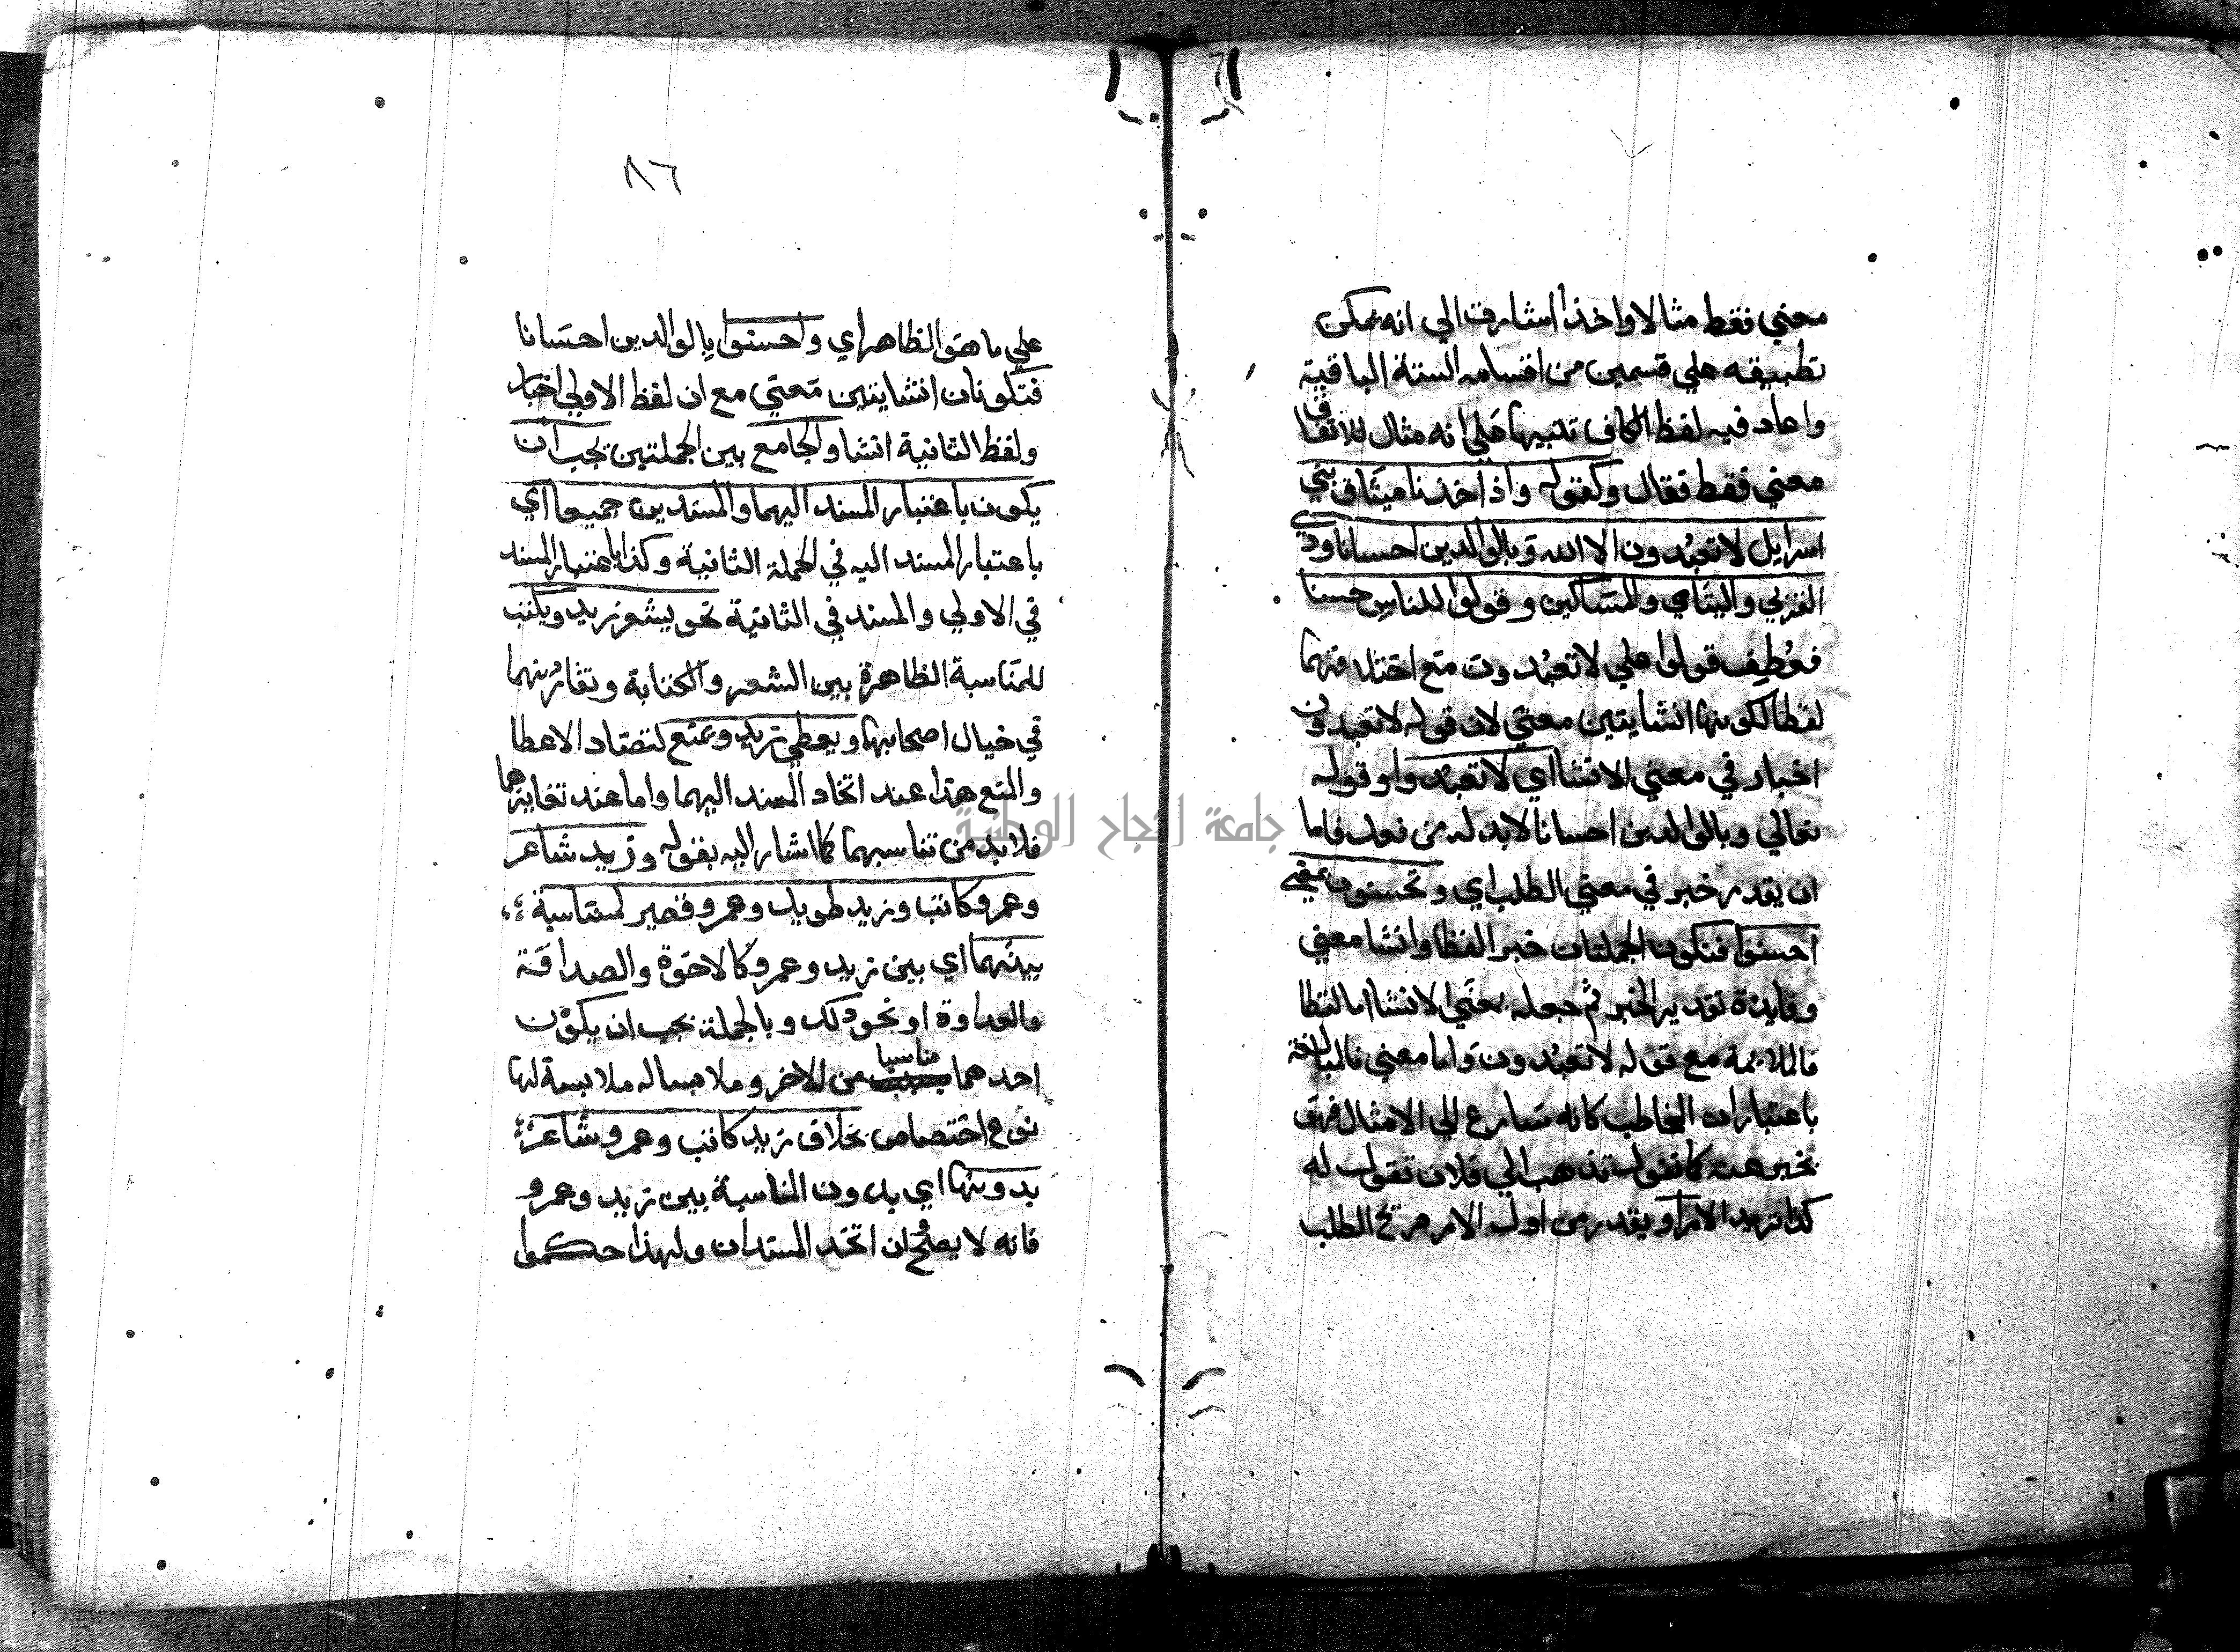 معني فقط مثالا واحدا اشارة الي انه يمكن
تطبيقه علي قسمين من اقسامه الستة الباقية
واعاد فيه لفظ الكاف تنبيها علي انه مثال للاتفاق
معني فقط فقال وكقوله واذ اخذنا ميثاق بني
اسرايل لا تعبدون الا الله وبالوالدين احسانا وذي
القربي واليتامي والمساكين وقولوا للناس حسنا
فعطف قولوا علي لا تعبدون مع اختلافهما
لفظا لكونهما انشايتين معني لان قوله لا تعبدون
اخبار في معني الانشا اي لا تعبدوا وقوله
تعالي وبالوالدين احسانا لابد له من فعل فاما
ان يقدر خبر في معني الطلب اي وتحسنون بمعني
احسنوا فتكون الجملتان خبرا لفظا وانشا معني
وفايدة تقدير الخبر ثم جعله بمعني الانشا اما لفظا
فالملايمة مع قوله لا تعبدون واما معني فالمبالغة
باعتبار ان المخاطب كانه سارع الي الامتثال فهو
يخبر عنه كما تقول تذهب الي فلان تقول له
كذا تريد الامر او يقدر من اول الامر صريح الطلب
٨٦
علي ما هو الظاهر اي واحسنوا بالوالدين احسانا
فتكونان انشايتين معني مع ان لفظ الاولي اخبار
ولفظ الثانية انشا والجامع بين الجملتين يجب ان
يكون باعتبار المسند اليهما والمسندين جميعا اي
باعتبار المسند اليه في الجملة الثانية وكذا باعتبار المسند
في الاولي والمسند في الثانية نحو يشعر زيد ويكتب
للمناسبة الظاهرة بين الشعر والكتابة وتقارنهما
في خيال اصحابهما ويعطي زيد ويمنع لتضاد الاعطا
والمنع هذا عند اتحاد المسند اليهما واما عند تغايرهما
فلا بد من تناسبهما كما اشار اليه بقوله وزيد شاعر
وعمرو كاتب وزيد طويل وعمرو قصير لمناسبة
بينهما اي بين زيد وعمرو كالاخوة والصداقة
والعداوة او نحو ذلك وبالجملة يجب ان يكون
احدهما مناسبا من الاخر وملابسا له ملابسة لها
نوع اختصاص بخلاف زيد كاتب وعمرو شاعر
بدونها اي بدون المناسبة بين زيد وعمرو
فانه لا يصلح ان اتحد المسندان ولهذا حكموا
جامعة النجاح الوطنية